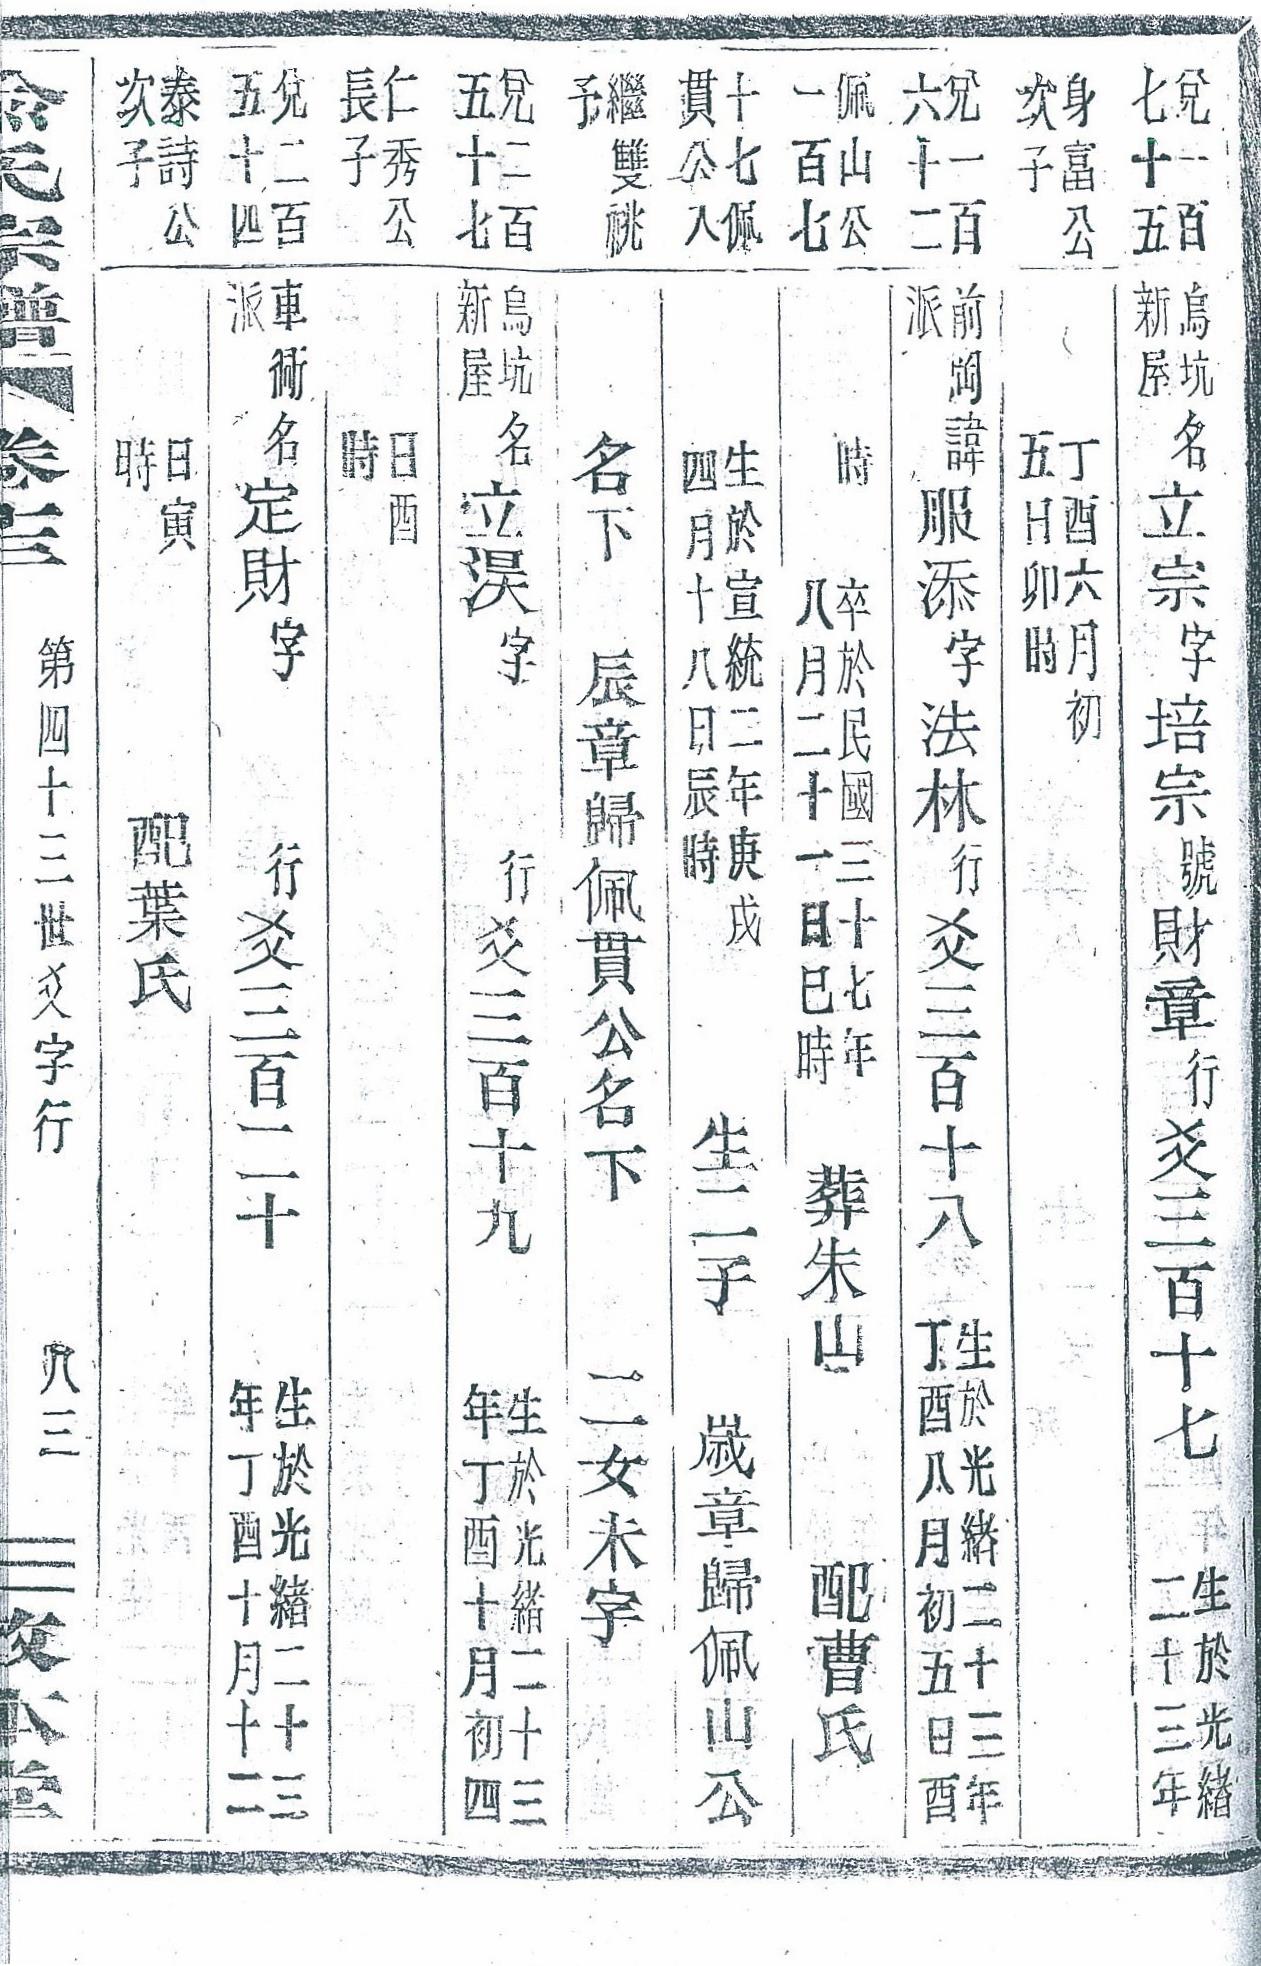 兌一百七十五
烏坑新屋名立宗字培宗號財章行爻三百十七生於光緒二十三年
身富公次子
丁酉六月初五日卯時
兌一百六十二
前岡派諱服添字法林行爻三百十八生於光緒二十三年丁酉八月初五日酉
佩山公一百七
時卒於民國三十七年八月二十一日巳時葬朱山配曹氏
十七佩貫公入
生於宣統二年庚戌四月十八日辰時生二子歲章歸佩山公
繼雙祧予
名下辰章歸佩貫公名下二女未字
兌二百五十七
烏坑新屋名立淏字行爻三百十九生於光緒二十三年丁酉十月初四
仁秀公長子
日酉時
兌二百五十四
車衕派名定財字行爻三百二十生於光緒二十三年丁酉十月十二
泰詩公次子
日寅時配葉氏
氏宗譜卷三第四十三世爻字行八三敦本堂